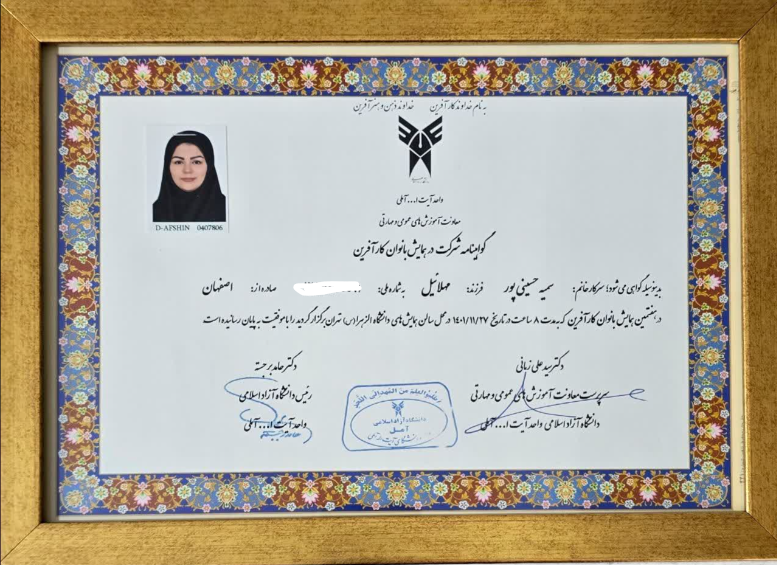 به نام خداوند کارآفرین خداوند ذهن و هنر آفرین
واحد آیت ا... آملی
معاونت آموزش های عمومی و مهارتی
گواهینامه شرکت در همایش بانوان کارآفرین
D-AFSHIN 0407806
بدینوسیله گواهی می شود؛ سرکار خانم: سمیه حسینی پور فرزند: مهلائیل به شماره ملی: صادره از: اصفهان
در هفتمین همایش بانوان کارآفرین که به مدت ۸ ساعت در تاریخ ۱۴۰۱/۱۱/۲۷ در محل سالن همایش های دانشگاه الزهرا (س) تهران برگزار گردید را با موفقیت به پایان رسانده است
دکتر سید علی زبانی
سرپرست معاونت آموزش های عمومی و مهارتی
دانشگاه آزاد اسلامی واحد آیت ا... آملی
دکتر حامد برجسته
رئیس دانشگاه آزاد اسلامی
واحد آیت ا... آملی
دانشگاه آزاد اسلامی
آمل